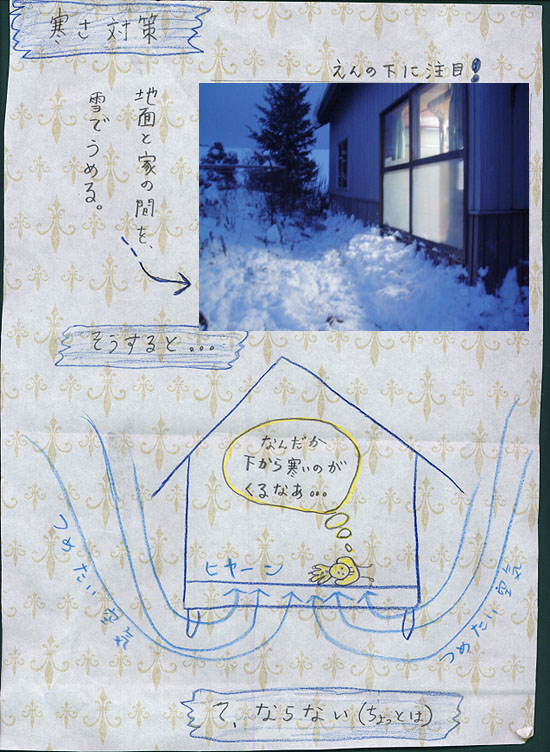 寒さ対策
えんの下に注目!
地面と家の間を、
雪でうめる。
そうすると...
なんだか
下から寒いのが
くるなあ...
ヒヤーン
つめたい空気
つめたい空気
て、ならない(ちょっとは)